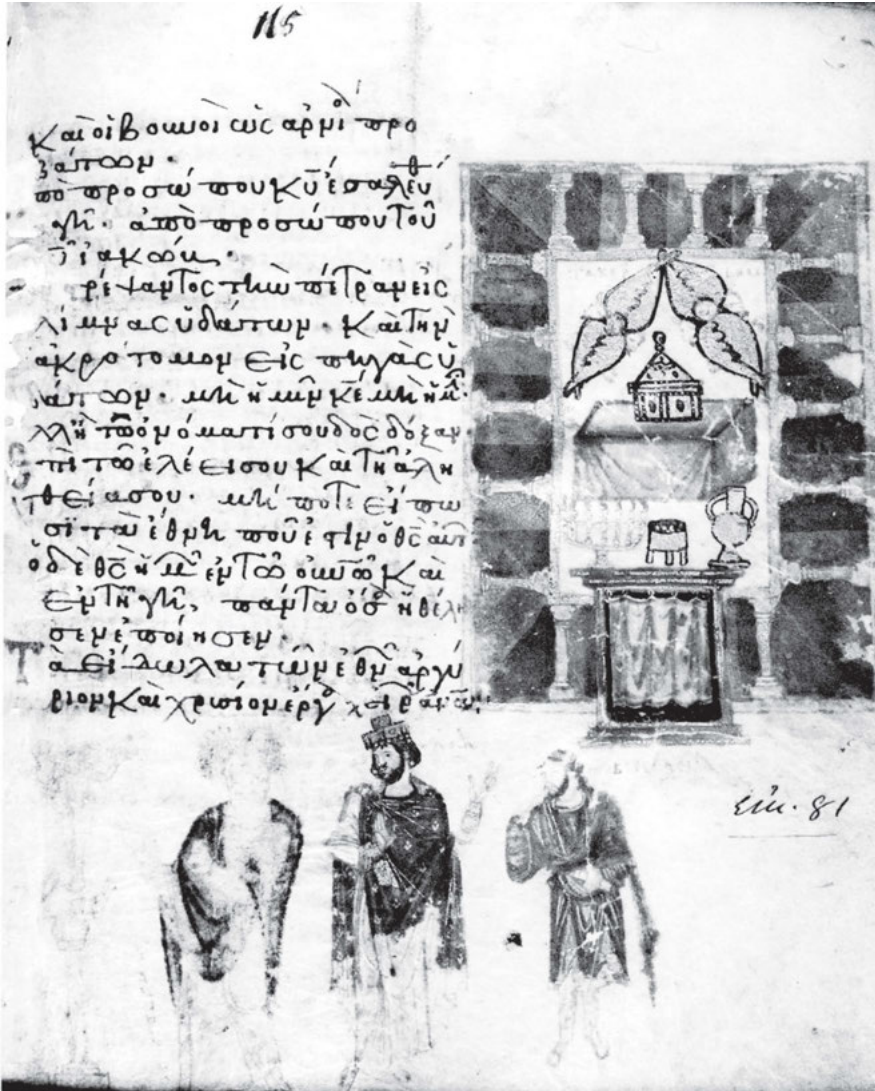 115
Καὶ οἱ βουνοὶ ὡς ἀρνί προ
βάτων·
πὸ προσώπου κῡ ἐσαλεύθ
γῆ· ἀπὸ προσώπου τοῦ
ἰακώβ·
ρέψαντος τὴν πέτραν εἰς
λίμνας ὑδάτων· καὶ τὴν
ἀκρότομον εἰς πηγὰς ὑ
δάτων· μὴ ἡμῖν κε̄ μὴ ἡμῖ·
λλ' ἢ τῷ ὀνόματί σου δὸς δόξαν·
πὶ τῷ ἐλέει σου καὶ τῇ ἀλη
θείᾳ σου· μή ποτε εἴπω
σι τὰ ἔθνη ποῦ ἐστὶν ὁ θς̄ αὐτ
ὁ δὲ θς̄ ἡμ ἐν τῷ οὐνῷ καὶ
ἐν τῇ γῇ, πάντα ὅσ ἠθέλη
σεν ἐποίησεν·
ὰ εἴδωλα τῶν ἐθν ἀργύ
ριον καὶ χρυσίον ἔργ χειρ ἀνων
εἰκ. 81